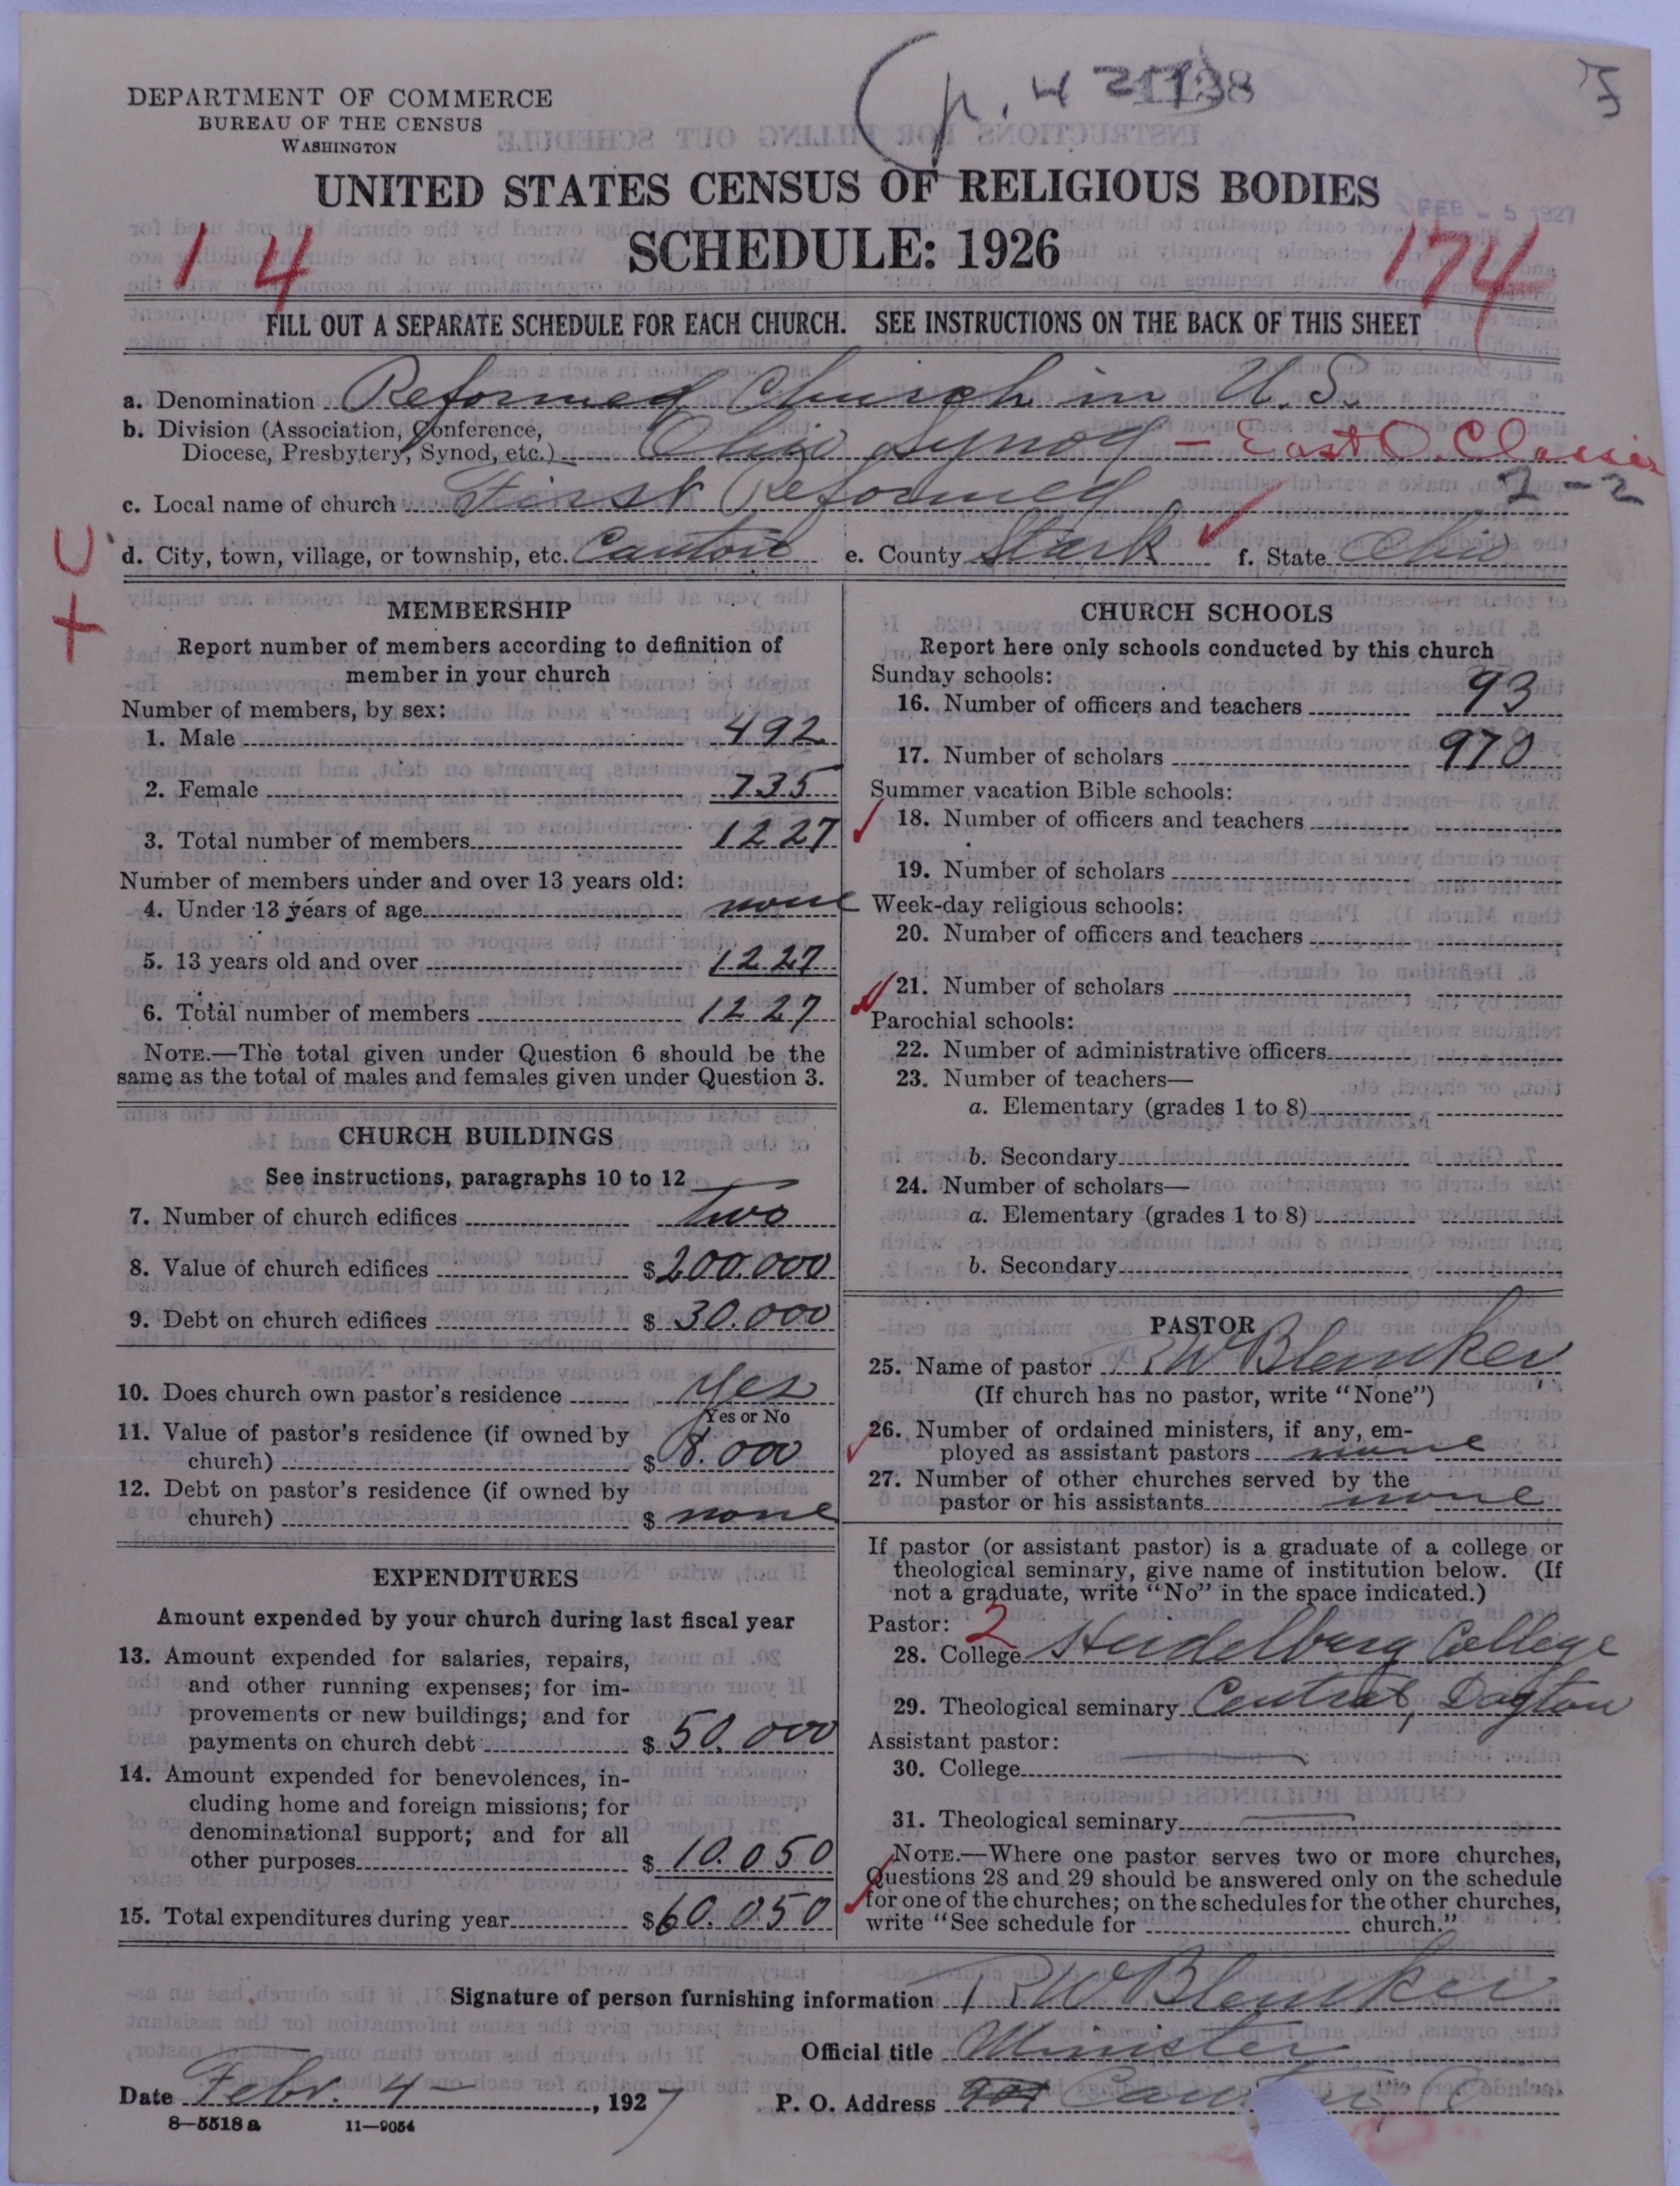 DEPARTMENT OF COMMERCE
BUREAU OF THE CENSUS
WASHINGTON
FEB - 5 1927
UNITED STATES CENSUS OF RELIGIOUS BODIES
SCHEDULE: 1926
1 4
174
FILL OUT A SEPARATE SCHEDULE FOR EACH CHURCH. SEE INSTRUCTIONS ON THE BACK OF THIS SHEET
a. Denomination Reformed Church in U.S.
b. Division (Association, Conference, Diocese, Presbytery, Synod, etc.) Ohio Synod - East O. Classis
c. Local name of church First Reformed
d. City, town, village, or township, etc. Canton e. County Stark f. State Ohio
MEMBERSHIP
Report number of members according to definition of
member in your church
Number of members, by sex:
1. Male 492
2. Female 735
3. Total number of members 1227
Number of members under and over 13 years old:
4. Under 13 years of age none
5. 13 years old and over 1227
6. Total number of members 1227
NOTE.—The total given under Question 6 should be the
same as the total of males and females given under Question 3.
CHURCH BUILDINGS
See instructions, paragraphs 10 to 12
7. Number of church edifices Two
8. Value of church edifices $200.000
9. Debt on church edifices $ 30.000
10. Does church own pastor's residence Yes
Yes or No
11. Value of pastor's residence (if owned by
church) $ 8.000
12. Debt on pastor's residence (if owned by
church) $ none
EXPENDITURES
Amount expended by your church during last fiscal year
13. Amount expended for salaries, repairs,
and other running expenses; for im-
provements or new buildings; and for
payments on church debt $ 50.000
14. Amount expended for benevolences, in-
cluding home and foreign missions; for
denominational support; and for all
other purposes $ 10.050
15. Total expenditures during year $60.050
CHURCH SCHOOLS
Report here only schools conducted by this church
Sunday schools:
16. Number of officers and teachers 93
17. Number of scholars 970
Summer vacation Bible schools:
18. Number of officers and teachers
19. Number of scholars
Week-day religious schools:
20. Number of officers and teachers
21. Number of scholars
Parochial schools:
22. Number of administrative officers
23. Number of teachers—
a. Elementary (grades 1 to 8)
b. Secondary
24. Number of scholars—
a. Elementary (grades 1 to 8)
b. Secondary
PASTOR
25. Name of pastor R W Blemker
(If church has no pastor, write "None")
26. Number of ordained ministers, if any, em-
ployed as assistant pastors none
27. Number of other churches served by the
pastor or his assistants none
If pastor (or assistant pastor) is a graduate of a college or
theological seminary, give name of institution below. (If
not a graduate, write "No" in the space indicated.)
Pastor: 2
28. College Heidelberg College
29. Theological seminary Central, Dayton
Assistant pastor:
30. College
31. Theological seminary
NOTE.—Where one pastor serves two or more churches,
Questions 28 and 29 should be answered only on the schedule
for one of the churches; on the schedules for the other churches,
write "See schedule for church."
Signature of person furnishing information R W Blemker
Official title Minister
Date Febr. 4 - , 1927 P. O. Address Canton, O
8—5518 a 11—9054